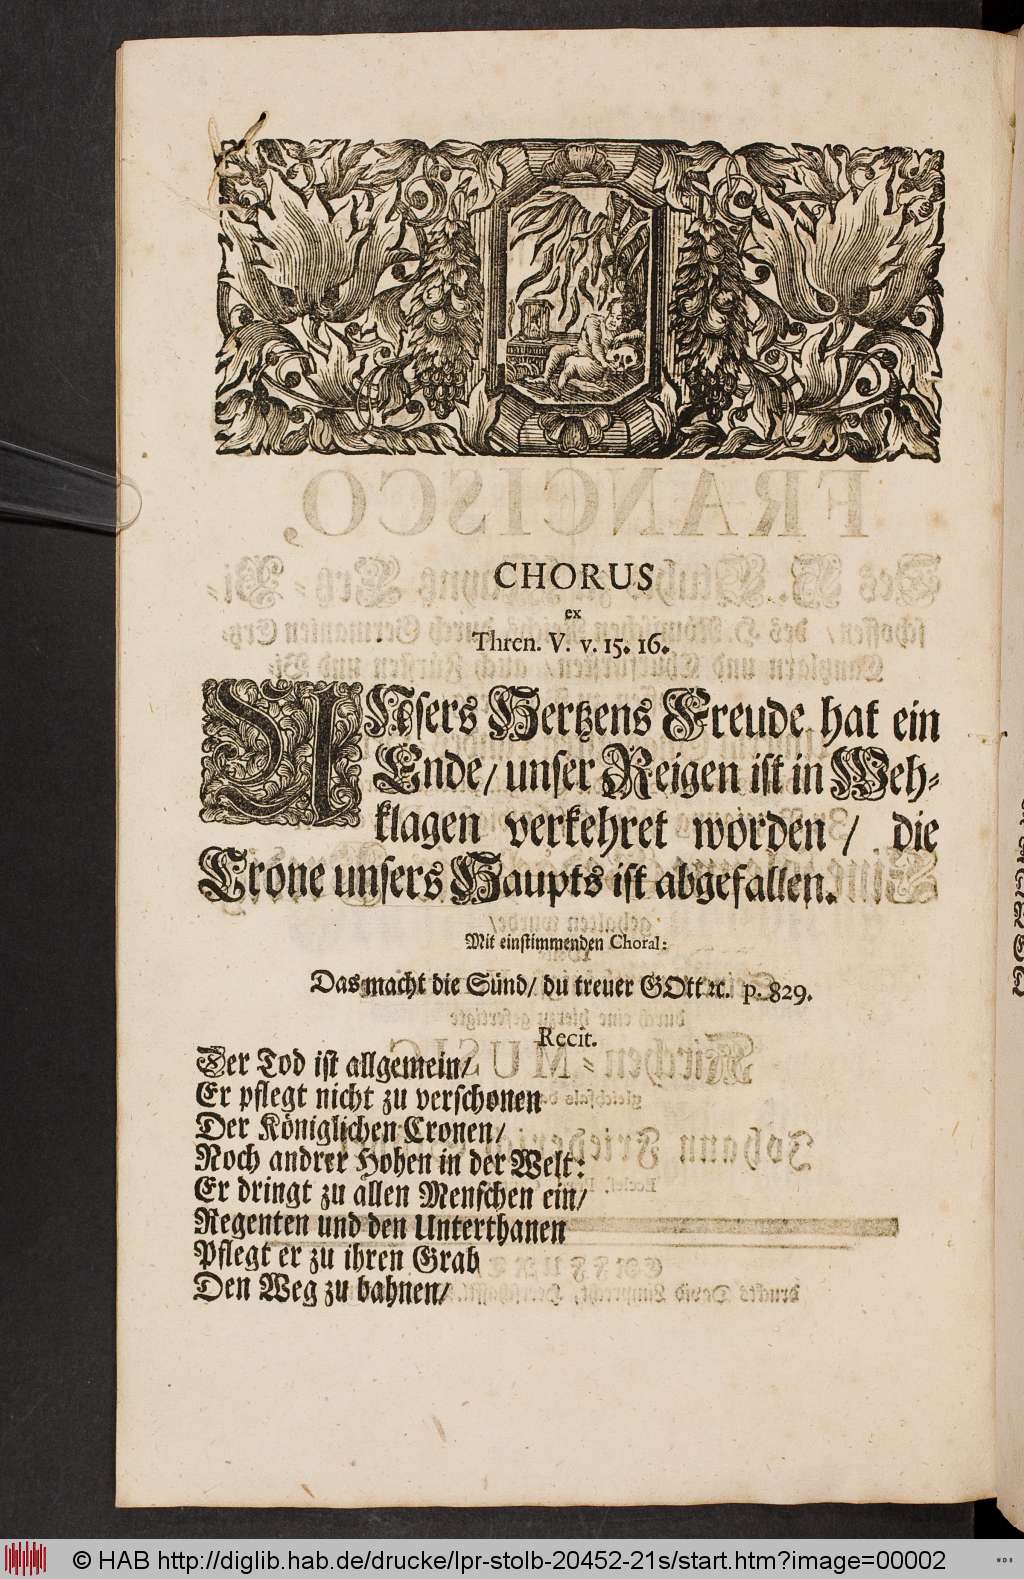 CHORUS
ex
Thren. V. v. 15. 16.
UNsers Hertzens Freude hat ein
Ende/ unser Reigen ist in Weh-
klagen verkehret worden/ die
Crone unsers Haupts ist abgefallen.
Mit einstimmenden Choral:
Das macht die Sünd/ du treuer GOtt ꝛc. p. 829.
Recit.
Der Tod ist allgemein/
Er pflegt nicht zu verschonen
Der Königlichen Cronen/
Noch andrer Hohen in der Welt:
Er dringt zu allen Menschen ein/
Regenten und den Unterthanen
Pflegt er zu ihren Grab
Den Weg zu bahnen/
© HAB http://diglib.hab.de/drucke/lpr-stolb-20452-21s/start.htm?image=00002